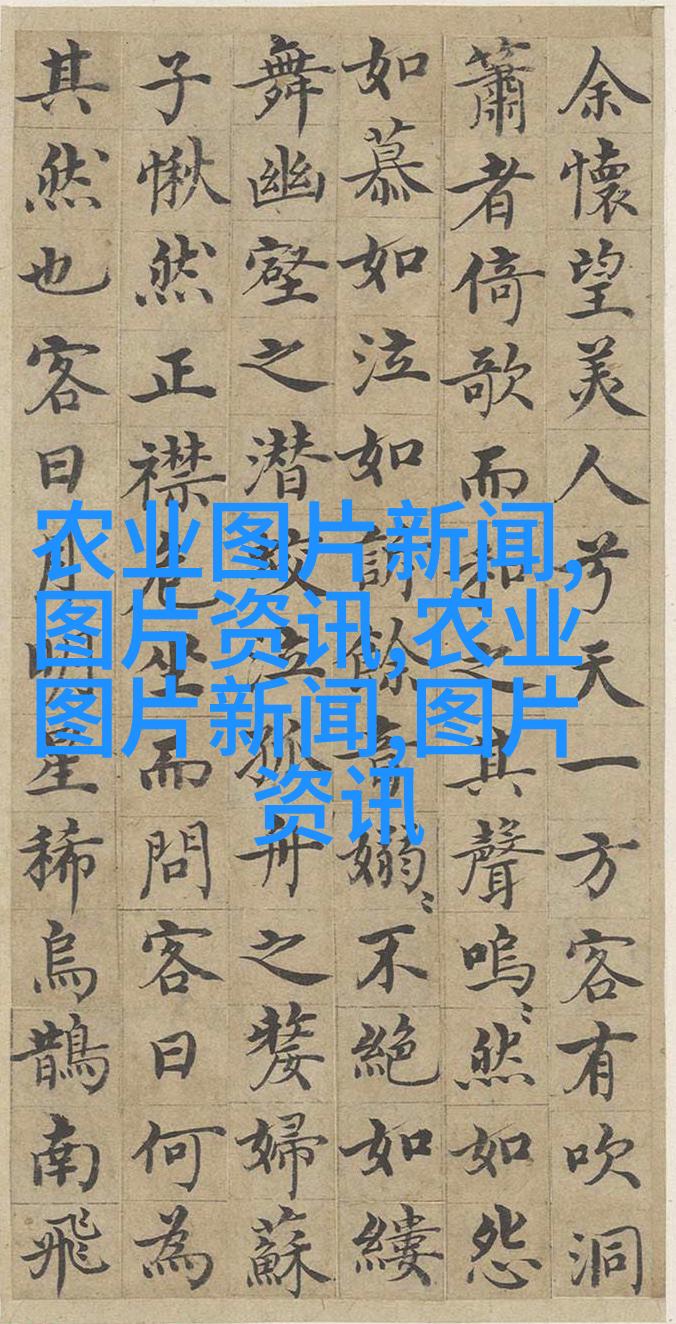 余懷望美人兮天一方客有吹洞
簫者倚歌而和之其聲嗚〻然如怨
如慕如泣如訴餘音嫋〻不絕如縷
舞幽壑之潜蛟泣孤舟之嫠婦蘇
子愀然正襟危坐而問客曰何為
其然也客曰月明星稀烏鵲南飛
农业图片新闻,
图片资讯,农业
图片新闻,图片
资讯